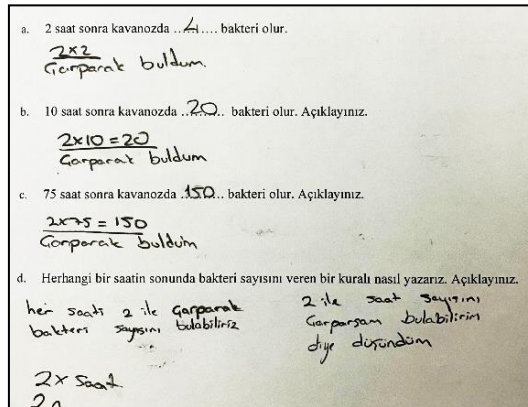 a. 2 saat sonra kavanozda ..4.... bakteri olur.
2x2
Çarparak buldum.
b. 10 saat sonra kavanozda ..20.. bakteri olur. Açıklayınız.
2x10=20
Çarparak buldum
c. 75 saat sonra kavanozda .150.. bakteri olur. Açıklayınız.
2x75=150
Çarparak buldum
d. Herhangi bir saatin sonunda bakteri sayısını veren bir kuralı nasıl yazarız. Açıklayınız.
her saati 2 ile çarparak
bakteri sayısını bulabiliriz
2 ile saat sayısını
Çarparsam bulabilirim
diye düşündüm
2x saat